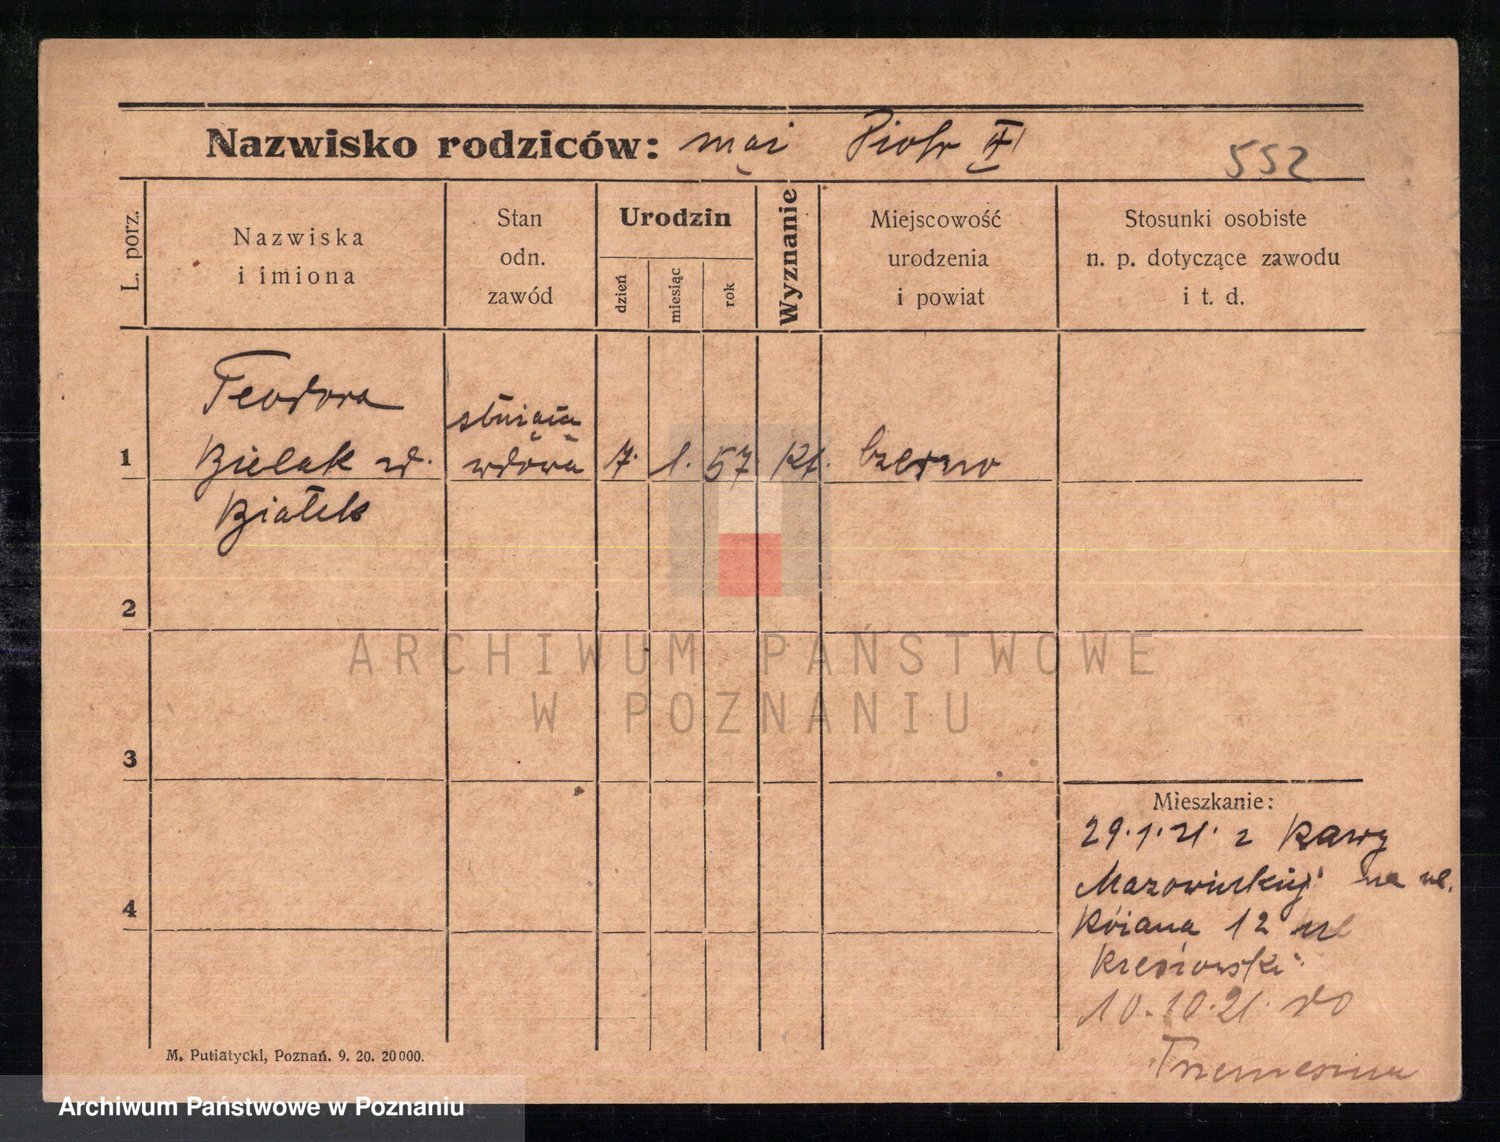 Nazwisko rodziców: mąż Piotr
552
L. porz.
Nazwiska
i imiona
Stan
odn.
zawód
Urodzin
dzień
miesiąc
rok
Wyznanie
Miejscowość
urodzenia
i powiat
Stosunki osobiste
n. p. dotyczące zawodu
i t. d.
Teodora
1 Bielak zd. wdowa 7. 1. 57. Kt.
Białek
2
3
4
Mieszkanie:
29.1.21. z Rawy
Mazowieckiej na ul.
Różana 12
10.10.21. do
Trzemeszna
M. Putiatycki, Poznań. 9. 20. 20000.
ARCHIWUM PAŃSTWOWE
W POZNANIU
Archiwum Państwowe w Poznaniu